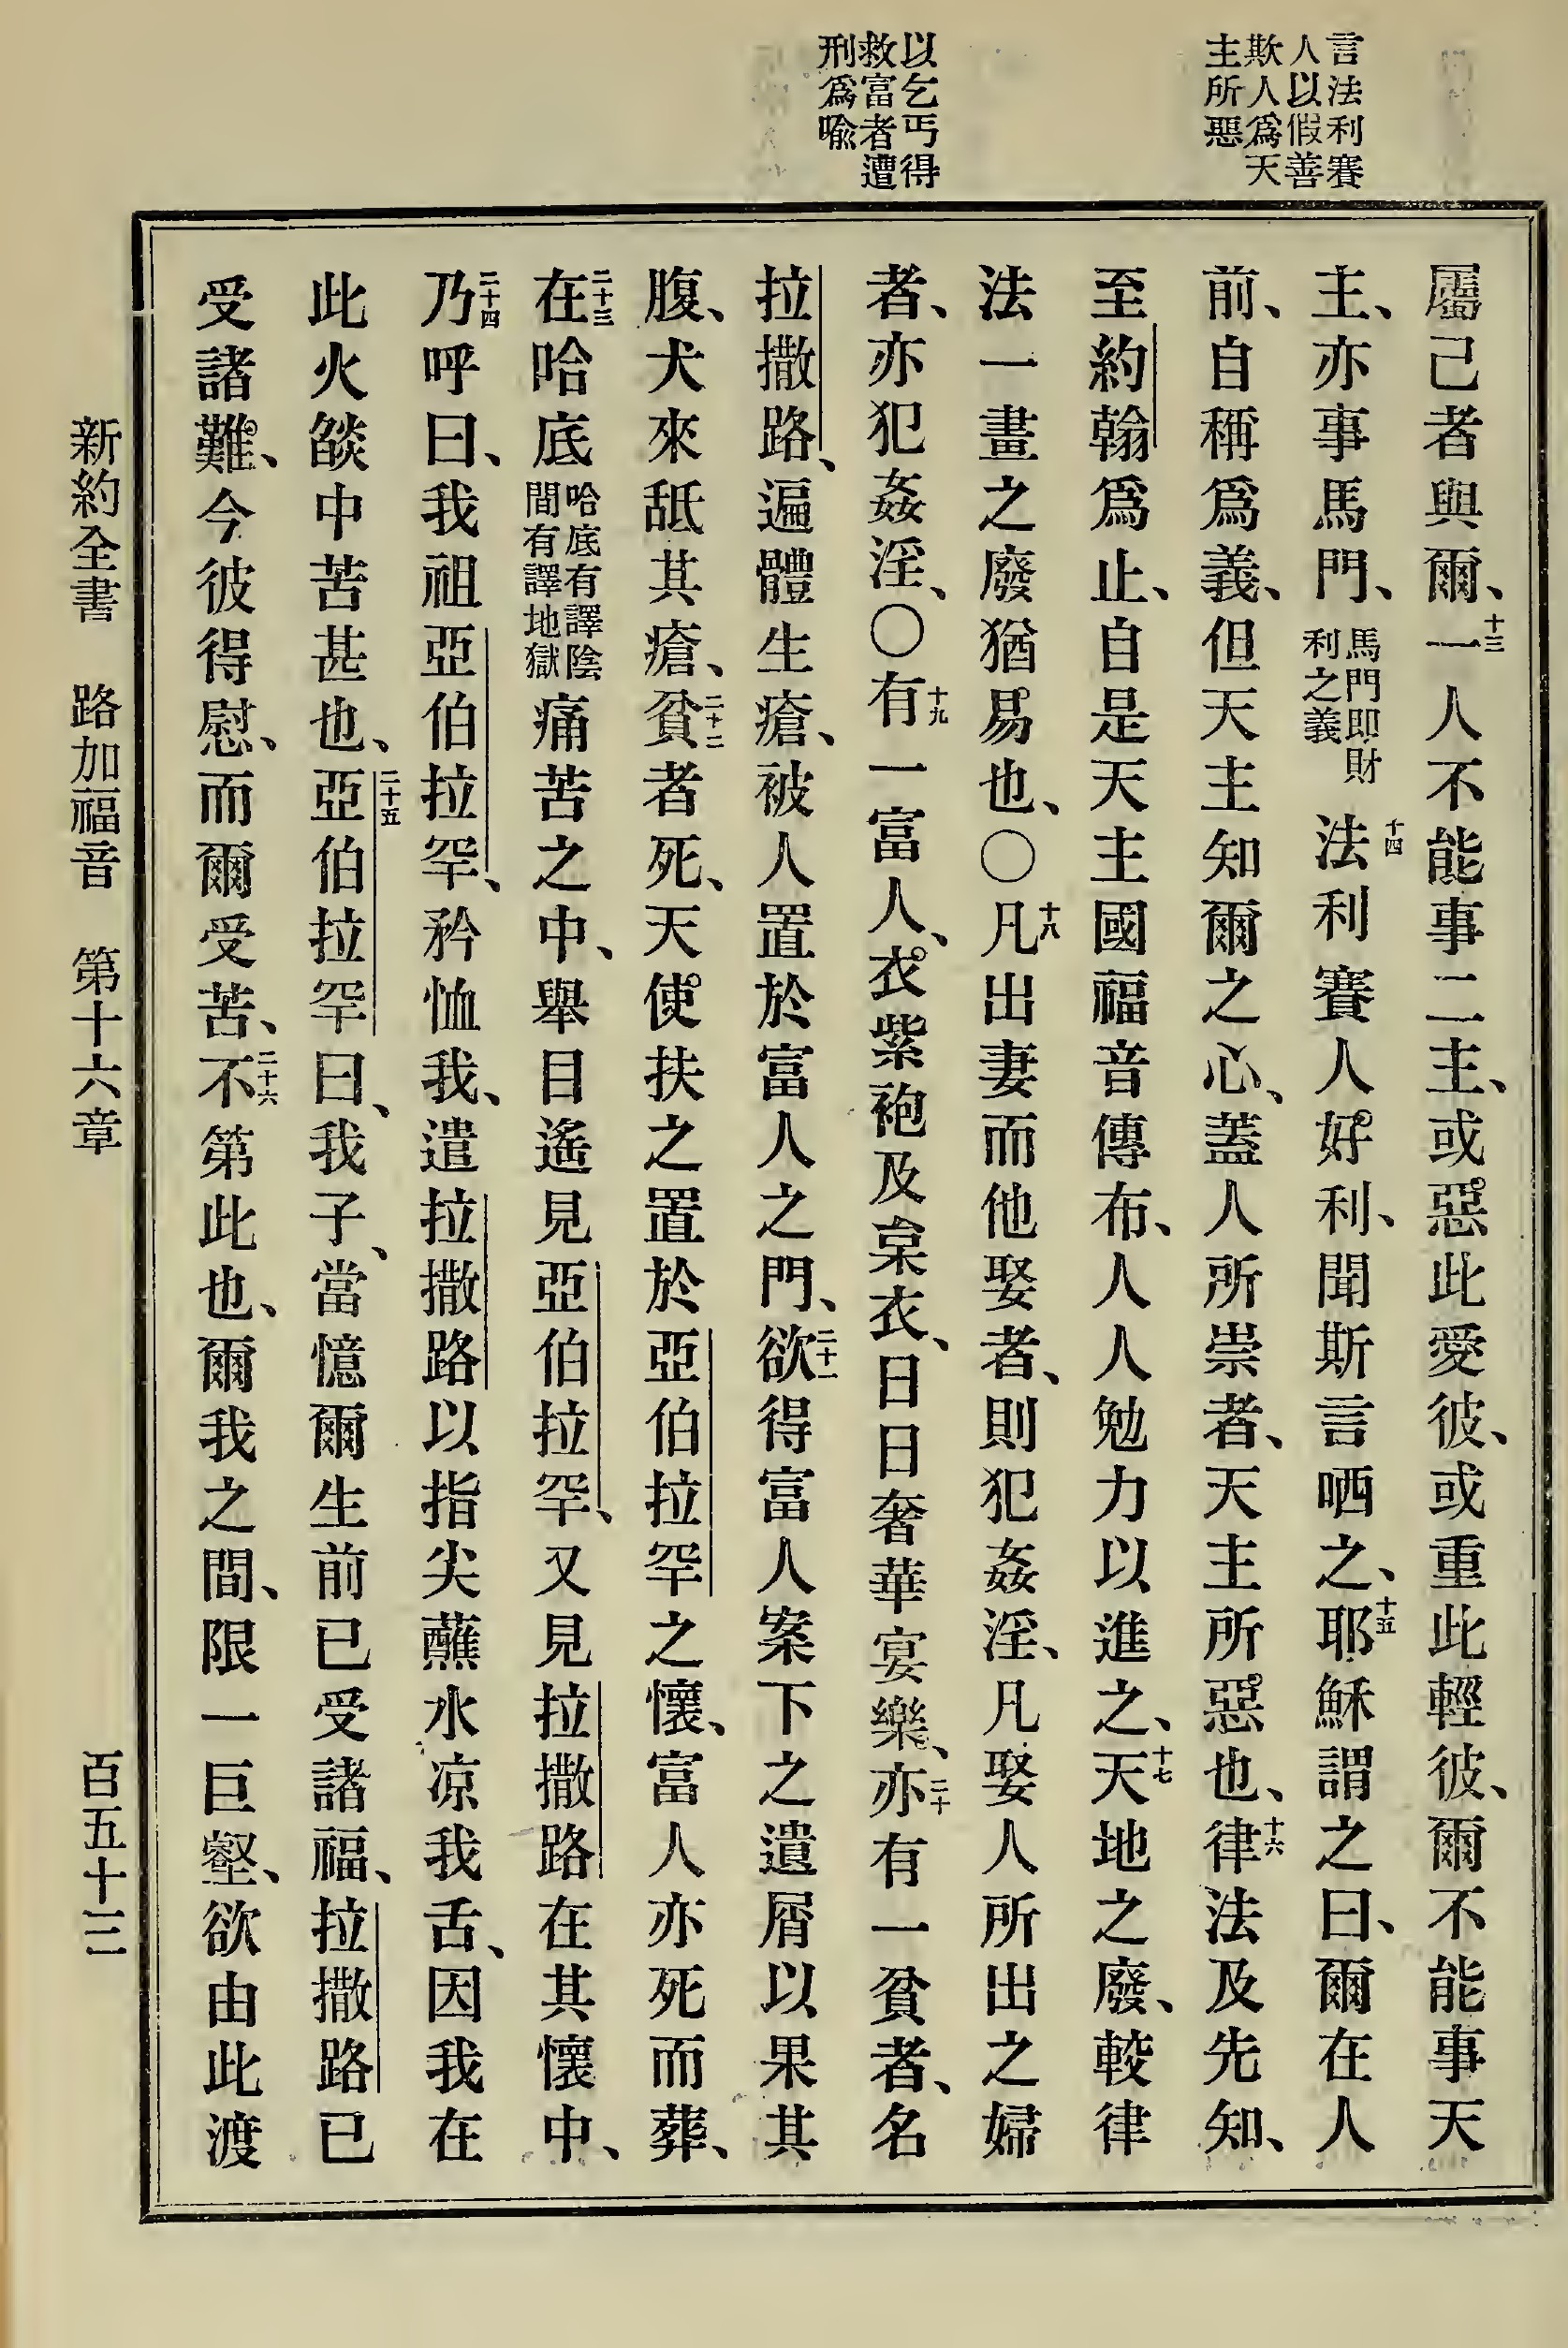 言法利賽
人以假善
欺人爲天
主所惡
以乞丐得
救富者遭
刑爲喻
屬己者與爾、十三一人不能事二主、或惡此愛彼、或重此輕彼、爾不能事天
主、亦事馬門、馬門即財利之義十四法利賽人好利、聞斯言哂之、十五耶穌謂之曰、爾在人
前、自稱爲義、但天主知爾之心、蓋人所崇者、天主所惡也、十六律法及先知、
至約翰爲止、自是天主國福音傳布、人人勉力以進之、十七天地之廢、較律
法一畫之廢猶易也、〇十八凡出妻而他娶者、則犯姦淫、凡娶人所出之婦
者、亦犯姦淫、〇十九有一富人、衣紫袍及枲衣、日日奢華宴樂、二十亦有一貧者、名
拉撒路、遍體生瘡、被人置於富人之門、二十一欲得富人案下之遺屑以果其
腹、犬來舐其瘡、二十二貧者死、天使扶之置於亞伯拉罕之懷、富人亦死而葬、
二十三在哈底哈底有譯陰間有譯地獄痛苦之中、舉目遙見亞伯拉罕、又見拉撒路在其懷中、
二十四乃呼曰、我祖亞伯拉罕、矜恤我、遣拉撒路以指尖蘸水凉我舌、因我在
此火燄中苦甚也、二十五亞伯拉罕曰、我子、當憶爾生前已受諸福、拉撒路已
受諸難、今彼得慰、而爾受苦、二十六不第此也、爾我之間、限一巨壑、欲由此渡
新約全書 路加福音 第十六章 百五十三